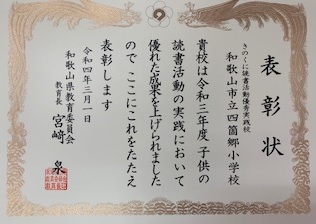 表彰状
きのくに読書活動優秀実践校
和歌山市立四箇郷小学校
貴校は令和三年度 子供の
読書活動の実践において
優れた成果を上げられました
ので ここにこれをたたえ
表彰します
令和四年三月一日
和歌山県教育委員会
教育長 宮﨑 泉